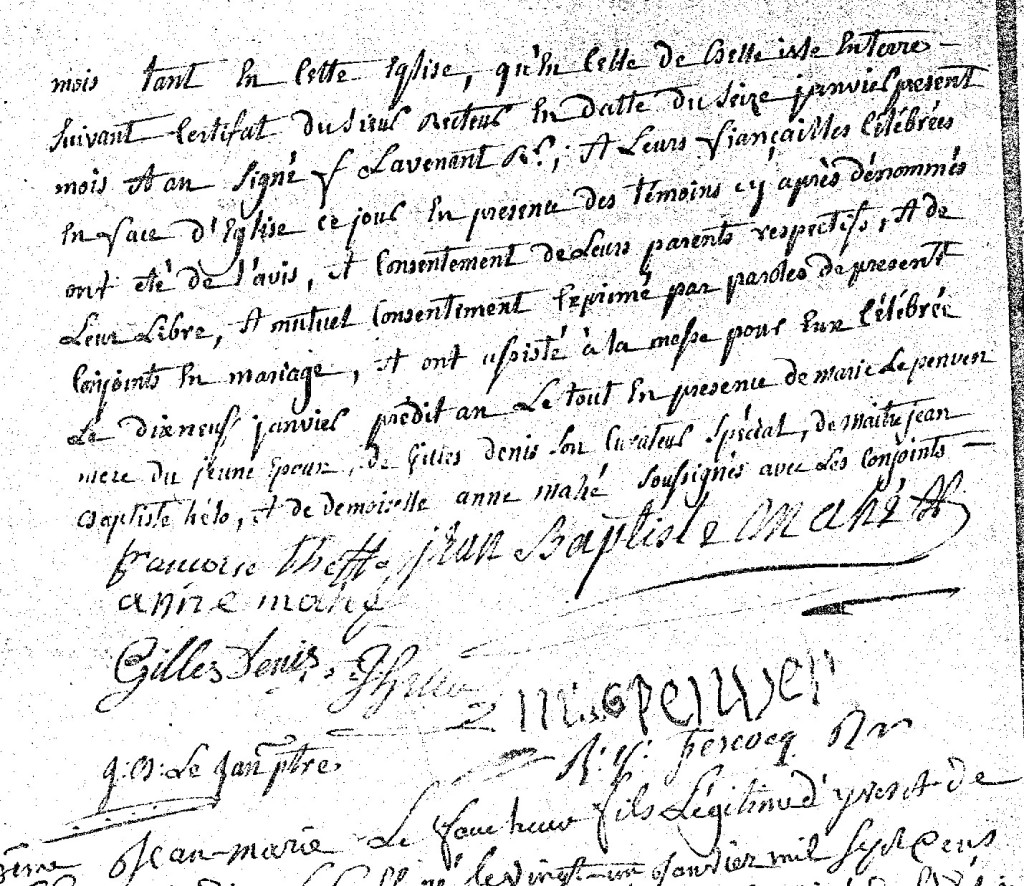 mois tant En Cette Eglise, qu'En Celle de Belle isle En terre
suivant Certifat du sieur Recteur En datte du seize janvier present
mois et an signé f Lavenant Rr.; et Leurs fiançailles Célébrées
En face d'Eglise ce jour En presence des témoins cy après dénommés
ont été de l'avis, et Consentement de Leurs parents respectifs, et de
Leur Libre, et mutuel Consentement Exprimé par paroles de present
Conjoints En mariage, et ont assisté à la messe pour Eux Célébrée
Le dixneuf janvier prédit an Le tout En presence de marie Le penven
mere du jeune Epoux, de Gilles denis son Curateur spécial, de maitre jean
Baptiste hélo, et de demoiselle anne mahé soussignés avec Les Conjoints
francoise jean Baptiste mahé
anne mahé
Gilles Denis
m penven
Le jan ptre
hercocq Rr
Jean-marie Le fils Légitime d'yves et de
né le vingt-un janvier mil sept cens